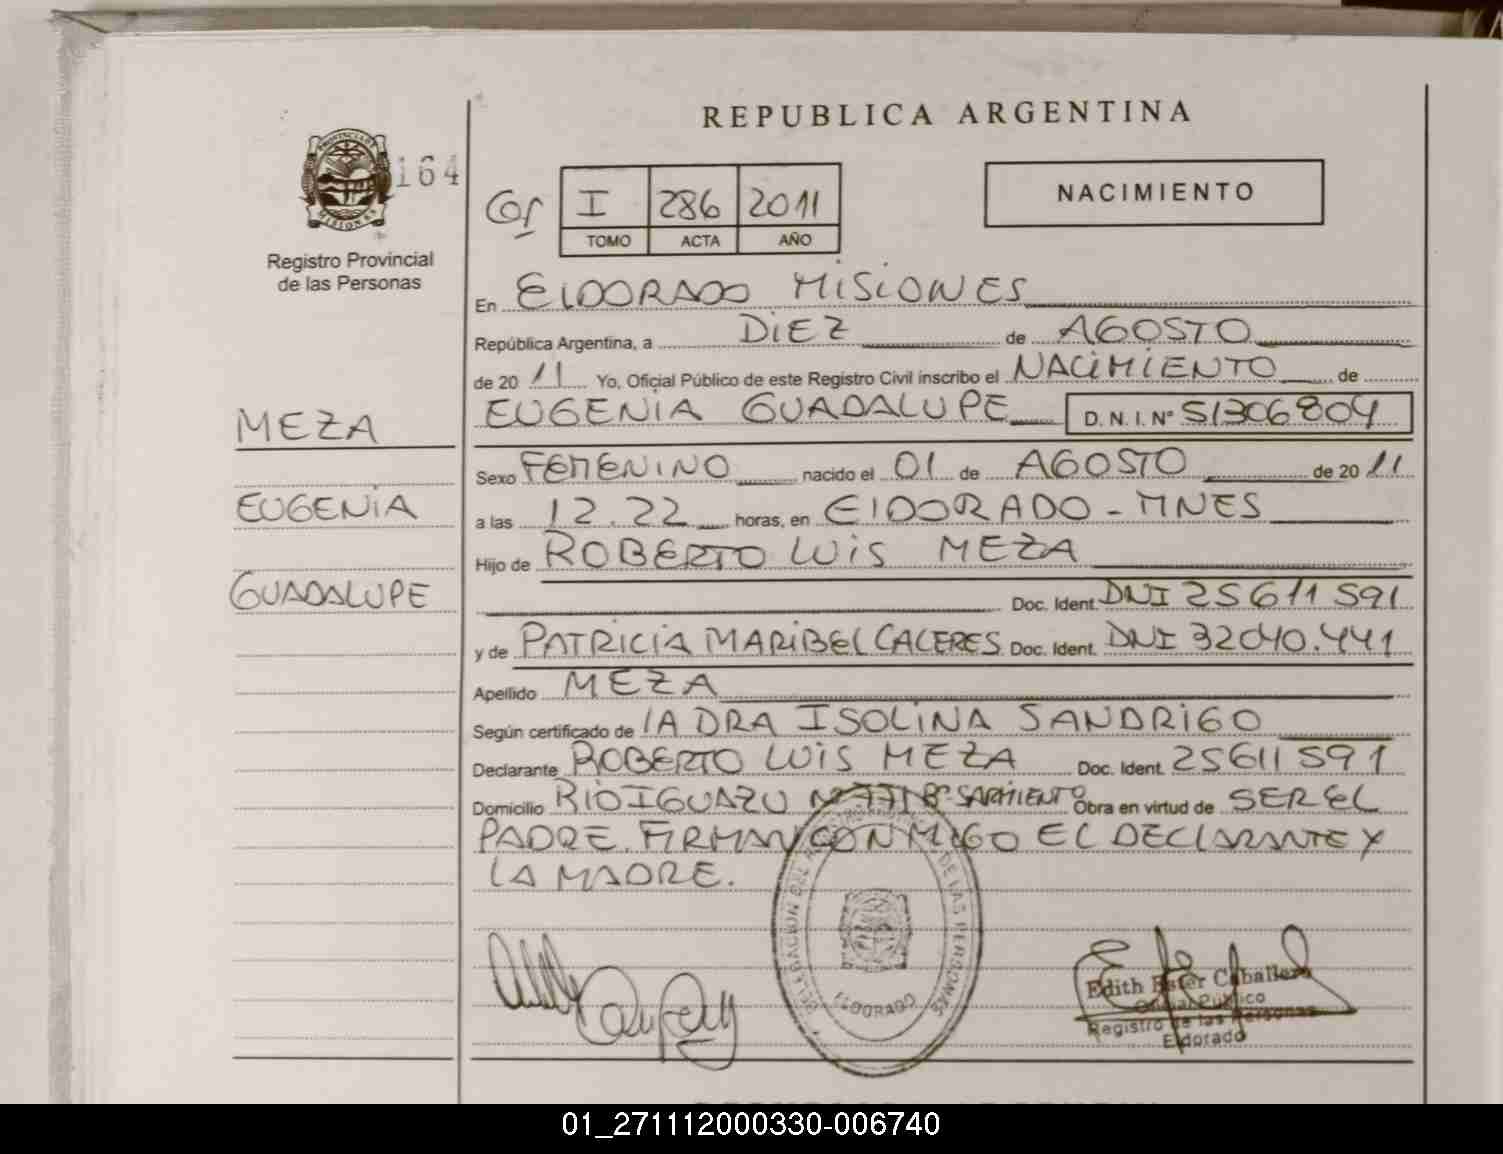 REPUBLICA ARGENTINA
PROVINCIA DE
MISIONES
164
Registro Provincial
de las Personas
I 286 2011
TOMO ACTA AÑO
NACIMIENTO
En ELDORADO MISIONES
República Argentina, a DIEZ de AGOSTO
de 20 11 Yo, Oficial Público de este Registro Civil inscribo el NACIMIENTO de
EUGENIA GUADALUPE D. N. I. Nº 51306804
MEZA
EUGENIA
GUADALUPE
Sexo FEMENINO nacido el 01 de AGOSTO de 20 11
a las 12.22 horas, en ELDORADO - MNES
Hijo de ROBERTO LUIS MEZA
Doc. Ident. DNI 25611591
y de PATRICIA MARIBEL CACERES Doc. Ident. DNI 32040.441
Apellido MEZA
Según certificado de LA DRA ISOLINA SANDRIGO
Declarante ROBERTO LUIS MEZA Doc. Ident. 25611591
Domicilio RIO IGUAZU Nº 771 Bº SARMIENTO Obra en virtud de SER EL
PADRE. FIRMAN CONMIGO EL DECLARANTE Y
LA MADRE.
DELEGACION DEL REGISTRO DE LAS PERSONAS
ELDORADO
Edith Ester Caballero
Oficial Público
Registro de las Personas
Eldorado
01_271112000330-006740